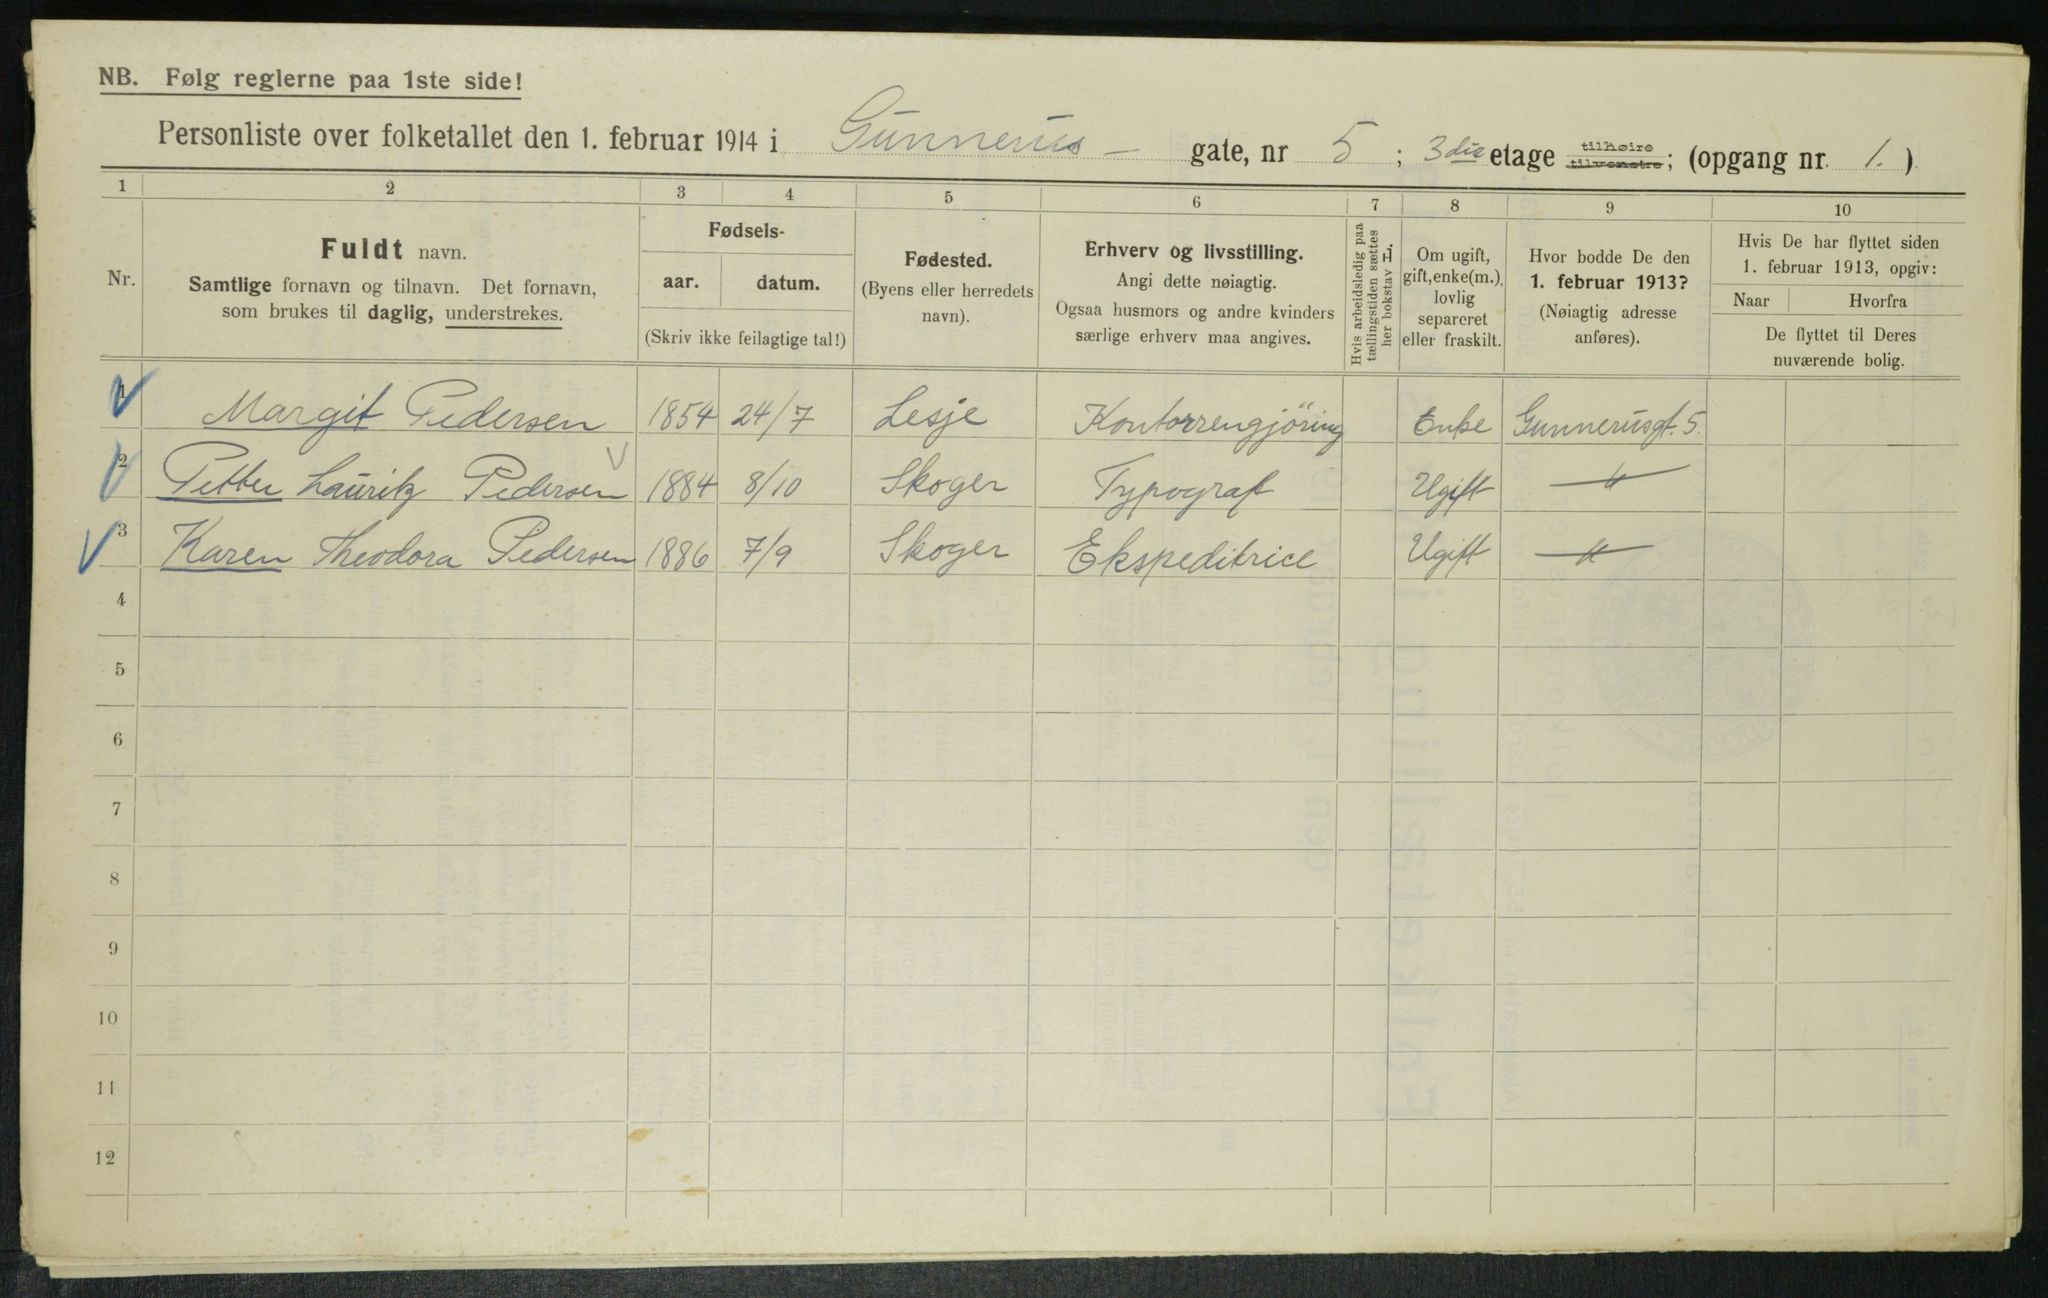 NB. Følg reglerne paa 1ste side!
Personliste over folketallet den 1. februar 1914 i Gunnerus- gate, nr 5; 3die etage tilhøire tilvenstre; (opgang nr. 1.)
1 2 3 4 5 6 7 8 9 10
Nr.
Fuldt navn.
Samtlige fornavn og tilnavn. Det fornavn,
som brukes til daglig, understrekes.
Fødsels-
aar. datum.
(Skriv ikke feilagtige tal!)
Fødested.
(Byens eller herredets
navn).
Erhverv og livsstilling.
Angi dette nøiagtig.
Ogsaa husmors og andre kvinders
særlige erhverv maa angives.
Hvis arbeidsledig paa
tællingstiden sættes
her bokstav L.
Om ugift,
gift, enke(m.),
lovlig
separeret
eller fraskilt.
Hvor bodde De den
1. februar 1913?
(Nøiagtig adresse
anføres).
Hvis De har flyttet siden
1. februar 1913, opgiv:
Naar Hvorfra
De flyttet til Deres
nuværende bolig.
1 Margit Pedersen 1854 24/7 Lesje Kontorrengjöring Enke Gunnerusgt. 5.
2 Petter Lauritz Pedersen 1884 8/10 Skoger Typograf Ugift "
3 Karen Theodora Pedersen 1886 7/9 Skoger Ekspeditrice Ugift "
4
5
6
7
8
9
10
11
12